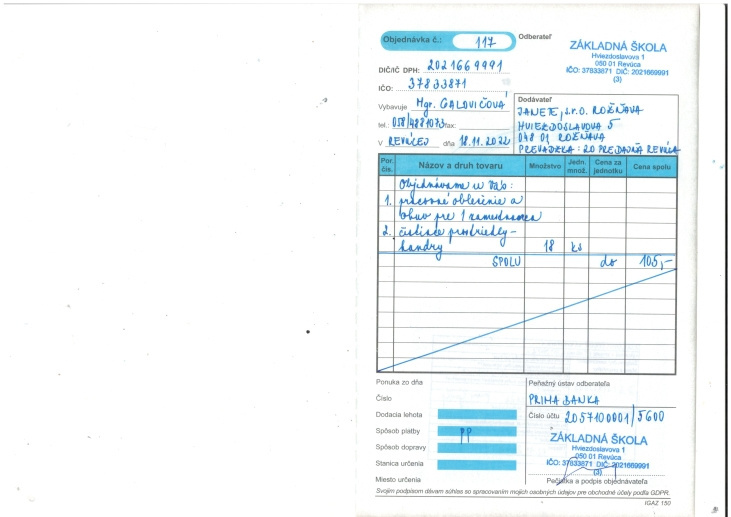 Objednávka č.: 117
Odberateľ
ZÁKLADNÁ ŠKOLA
Hviezdoslavova 1
050 01 Revúca
IČO: 37833871 DIČ: 2021669991
(3)
DIČ/IČ DPH: 2021669991
IČO: 37833871
Vybavuje Mgr. GALOVIČOVÁ
tel.: 058/4881073 fax:
V REVÚCEJ dňa 18.11.2022
Dodávateľ
JANETE, s.r.o. ROŽŇAVA
HVIEZDOSLAVOVA 5
048 01 ROŽŇAVA
PREVÁDZKA: 20 PREDAJŇA REVÚCA
Por. čís. Názov a druh tovaru Množstvo Jedn. množ. Cena za jednotku Cena spolu
Objednávame u Vás:
1. pracovné oblečenie a
obuv pre 1 zamestnanca
2. čistiace prostriedky-
handry 18 ks
SPOLU do 105,-
Ponuka zo dňa
Číslo
Dodacia lehota
Spôsob platby PP
Spôsob dopravy
Stanica určenia
Miesto určenia
Peňažný ústav odberateľa
PRIMA BANKA
Číslo účtu 2057100001/5600
ZÁKLADNÁ ŠKOLA
Hviezdoslavova 1
050 01 Revúca
IČO: 37833871 DIČ: 2021669991
(3)
Pečiatka a podpis objednávateľa
Svojim podpisom dávam súhlas so spracovaním mojich osobných údajov pre obchodné účely podľa GDPR.
IGAZ 150